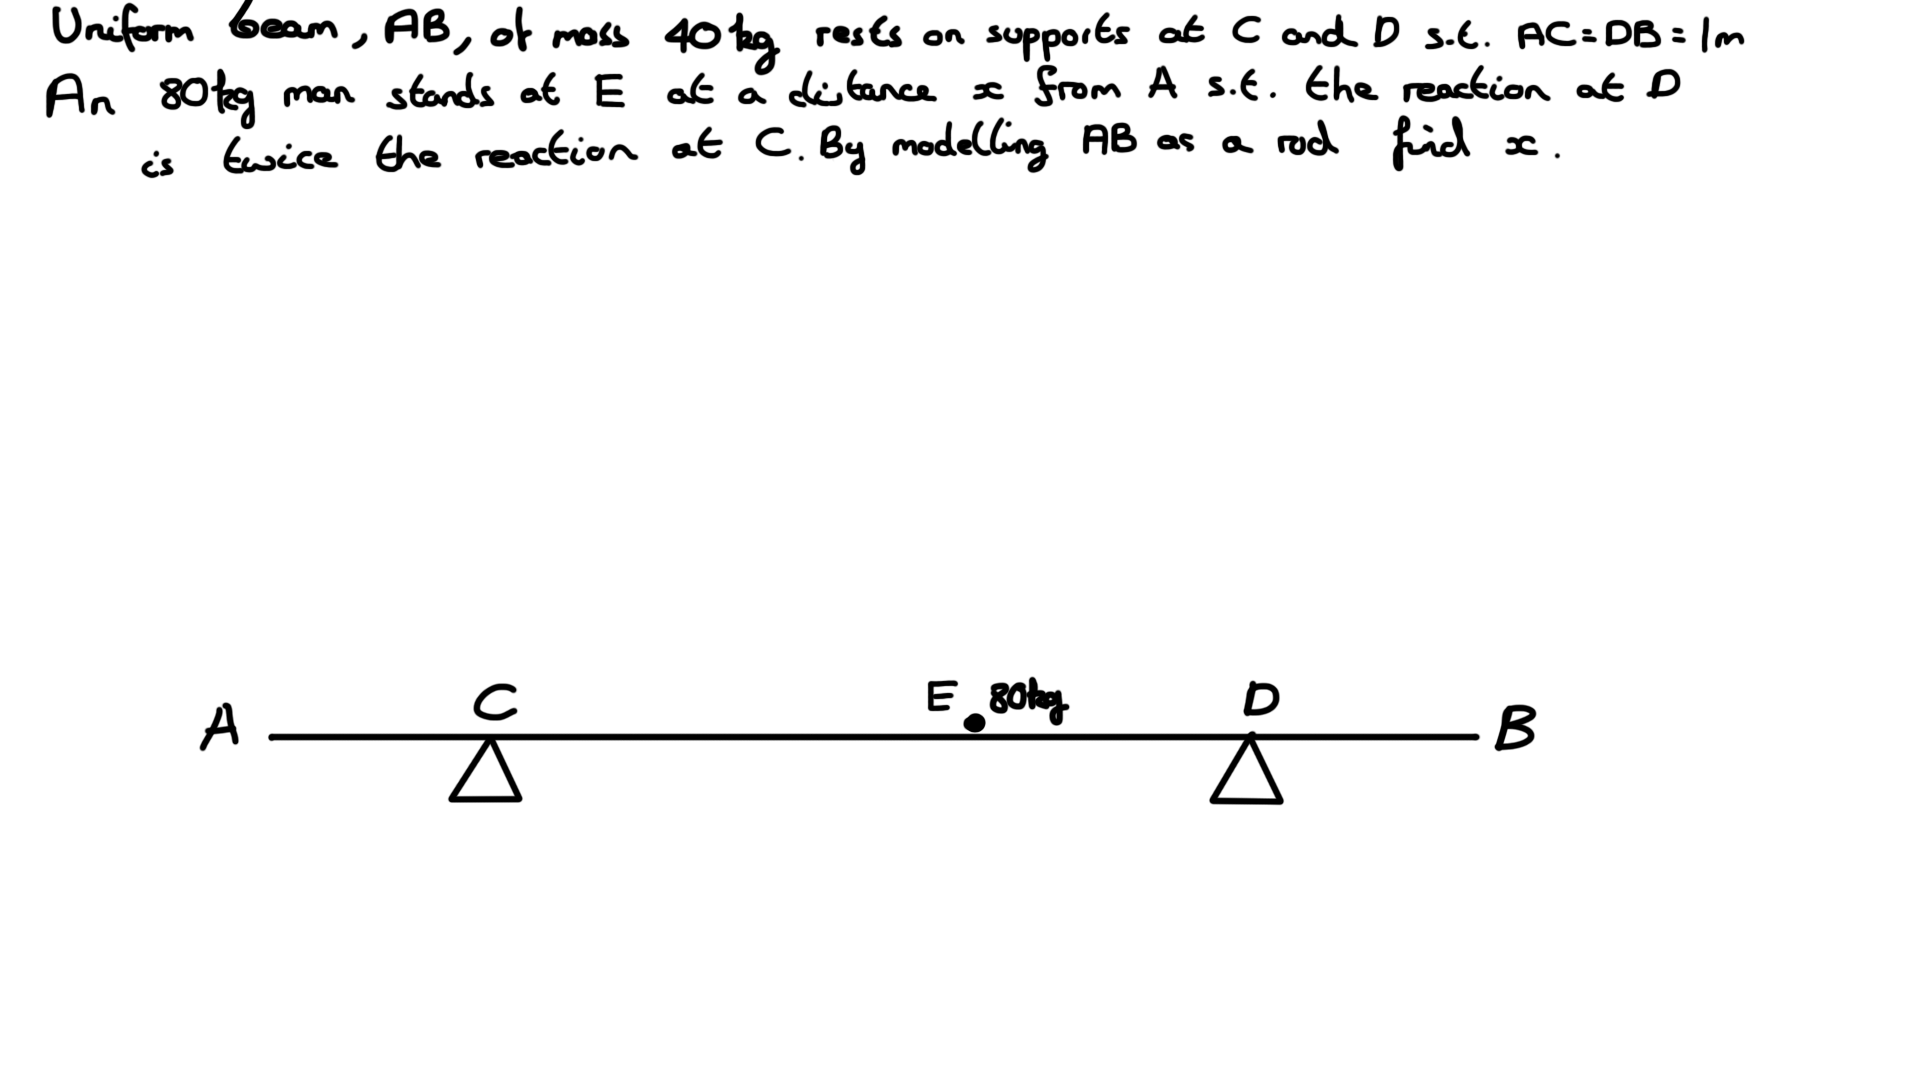 Uniform beam, AB, of mass 40kg rests on supports at C and D s.t. AC=DB=1m
An 80kg man stands at E at a distance x from A s.t. the reaction at D
is twice the reaction at C. By modelling AB as a rod find x.
A C E 80kg D B